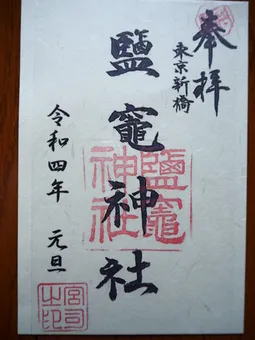 奉拝
東京新橋
鹽竈神社
令和四年 元旦
鹽竈神社
宮司之印